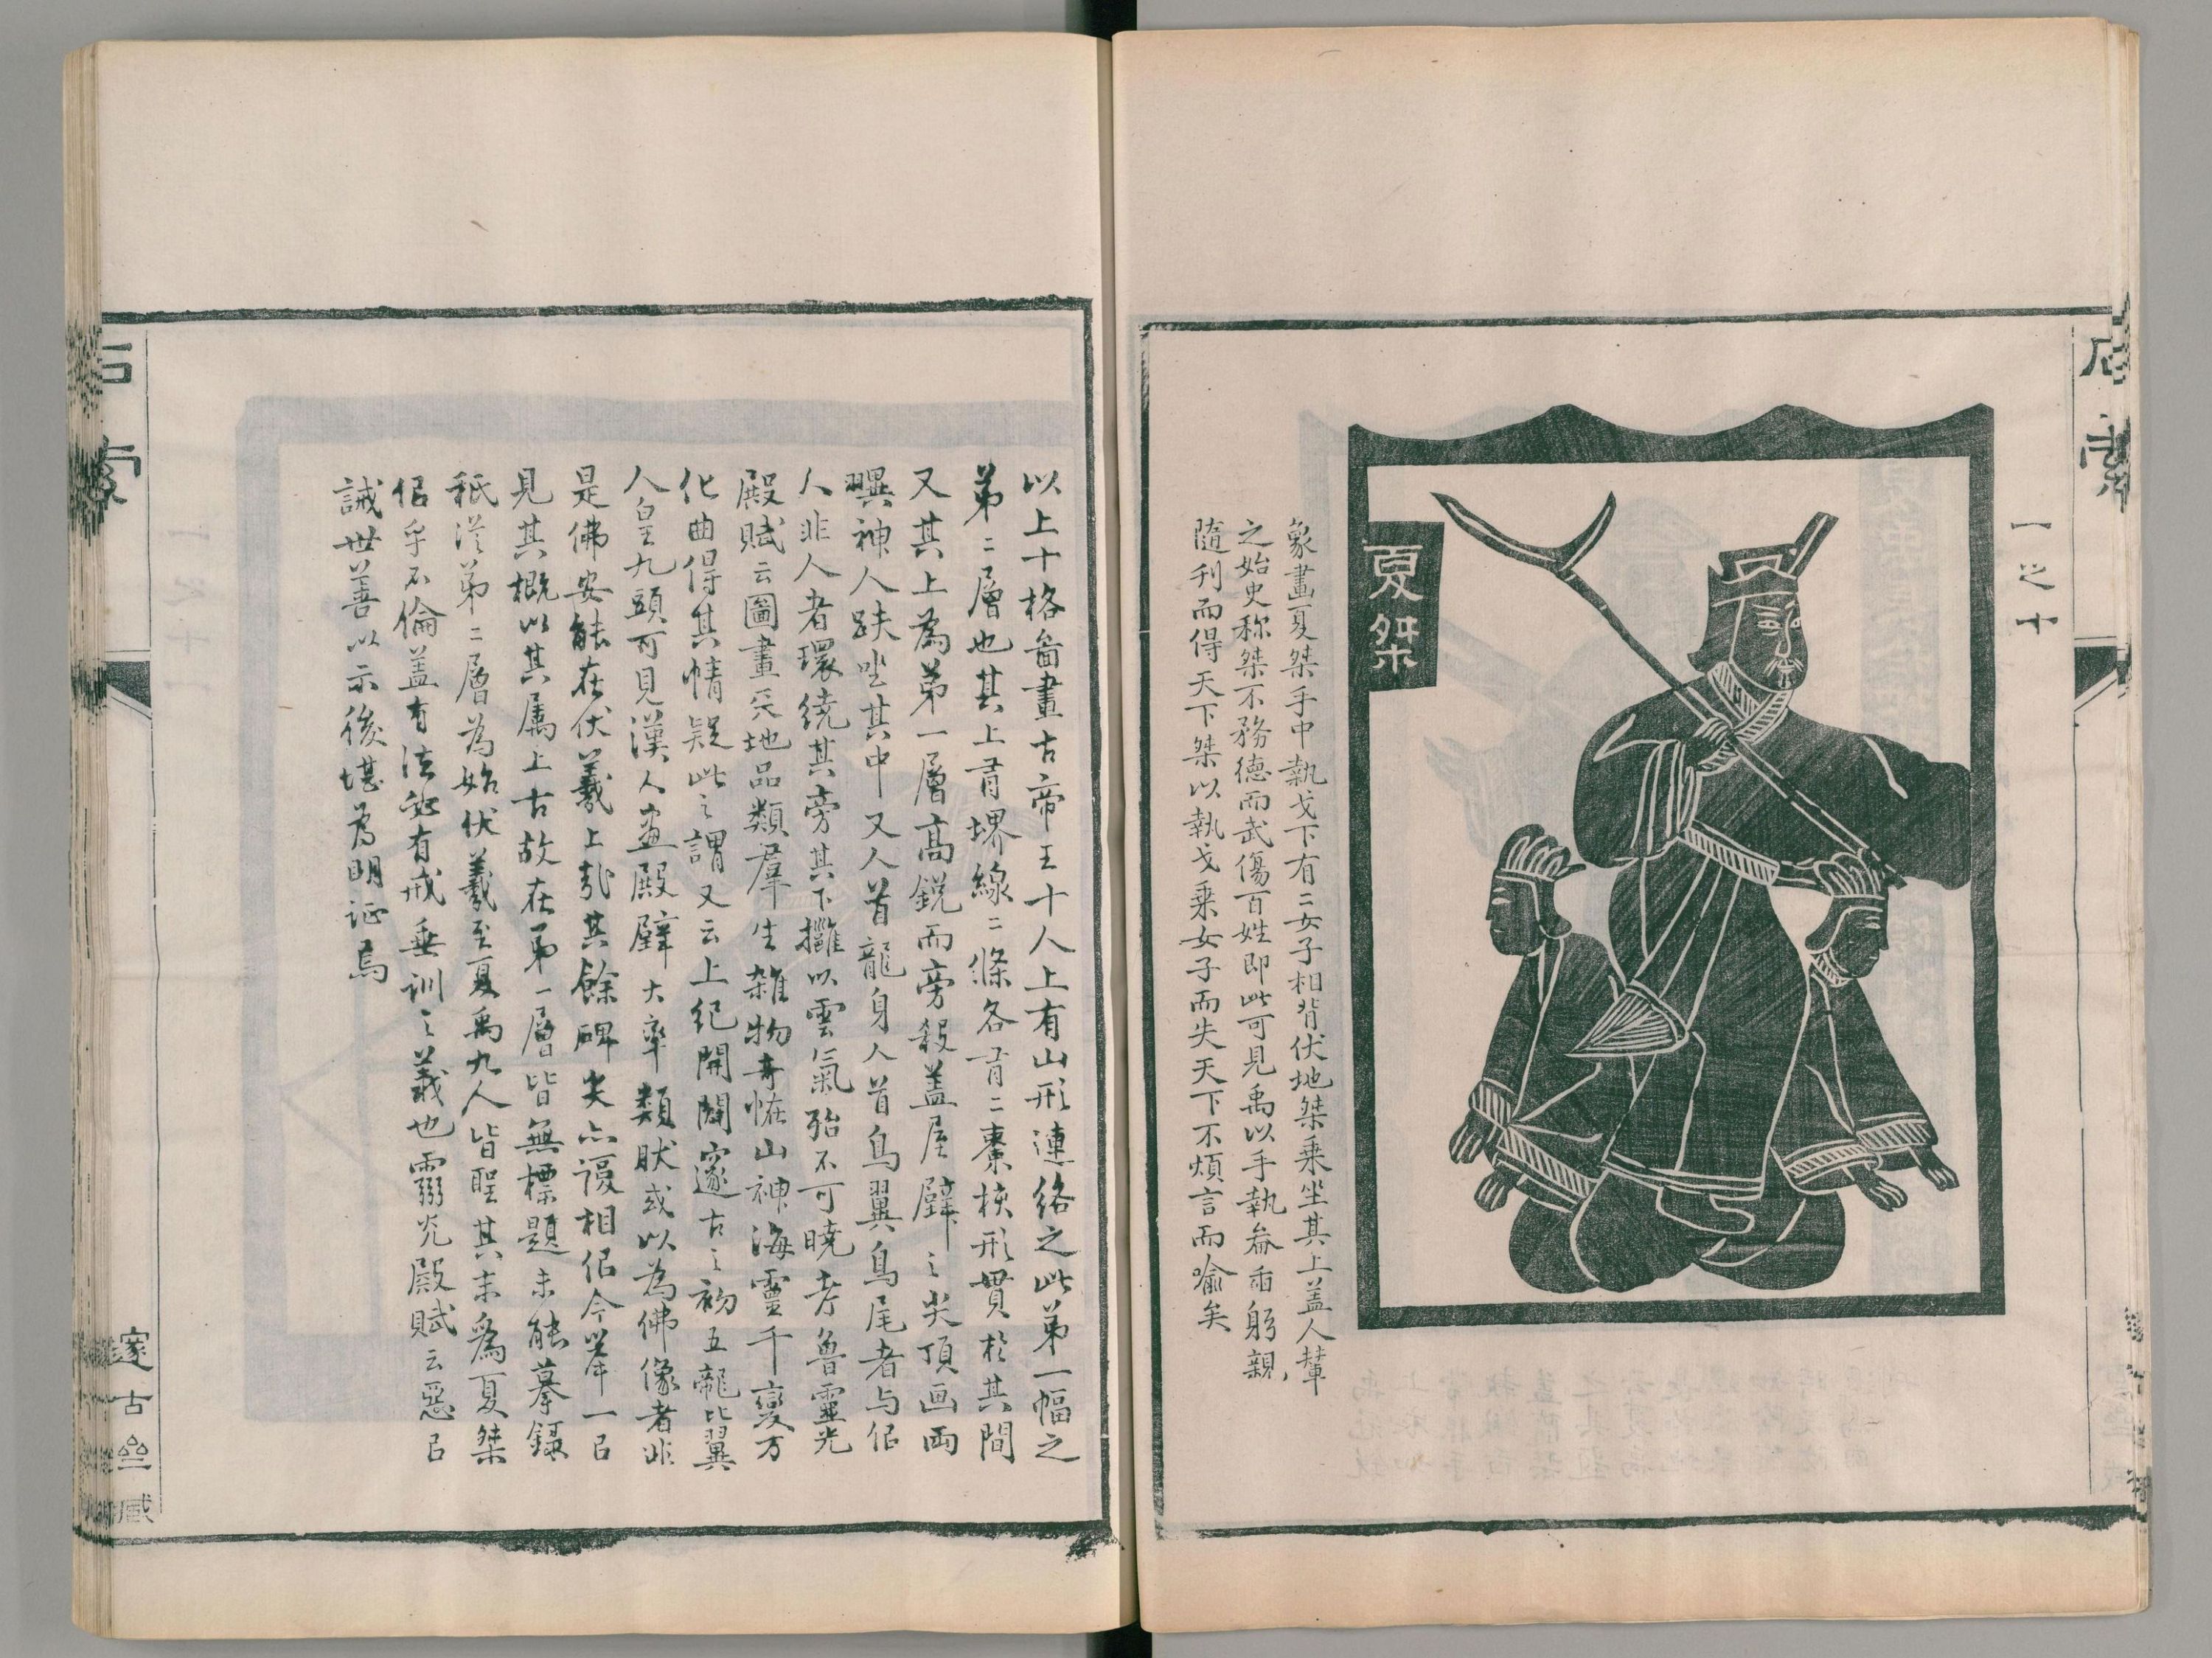 石索
一之十
夏桀
象畫夏桀手中執戈下有二女子相背伏地桀乗坐其上盖人輦
之始史称桀不務德而武傷百姓即此可見禹以手執畚臿躬親
隨刋而得天下桀以執戈乗女子而失天下不煩言而喻矣
以上十格畣畫古帝王十人上有山形連絡之此第一幅之
苐二層也其上有堺線二條各有二棗核形貫於其間
又其上為苐一層高鋭而旁殺盖屋壁之尖頂画兩
㔴神人趺坐其中又人首龍身人首鳥翼鳥尾者与佀
人非人者環繞其旁其下擁以雲氣殆不可曉考魯靈光
殿賦云圖畫天地品類羣生雜物奇恠山神海靈千變万
化曲得其情疑此之謂又云上紀開闢邃古之初五龍比翼
人皇九頭可見漢人畫殿壁大率類肰或以為佛像者非
是佛安能在伏羲上㢤其餘碑尖亦復相佀今舉一㠯
見其概以其属上古故在苐一層皆無標題未能摹録
秪從苐二層為始伏羲至夏禹九人皆聖其末為夏桀
佀乎不倫盖有法必有戒垂訓之義也靈光殿賦云惡㠯
誡世善以示後堪為明証焉
石索
邃古
臧